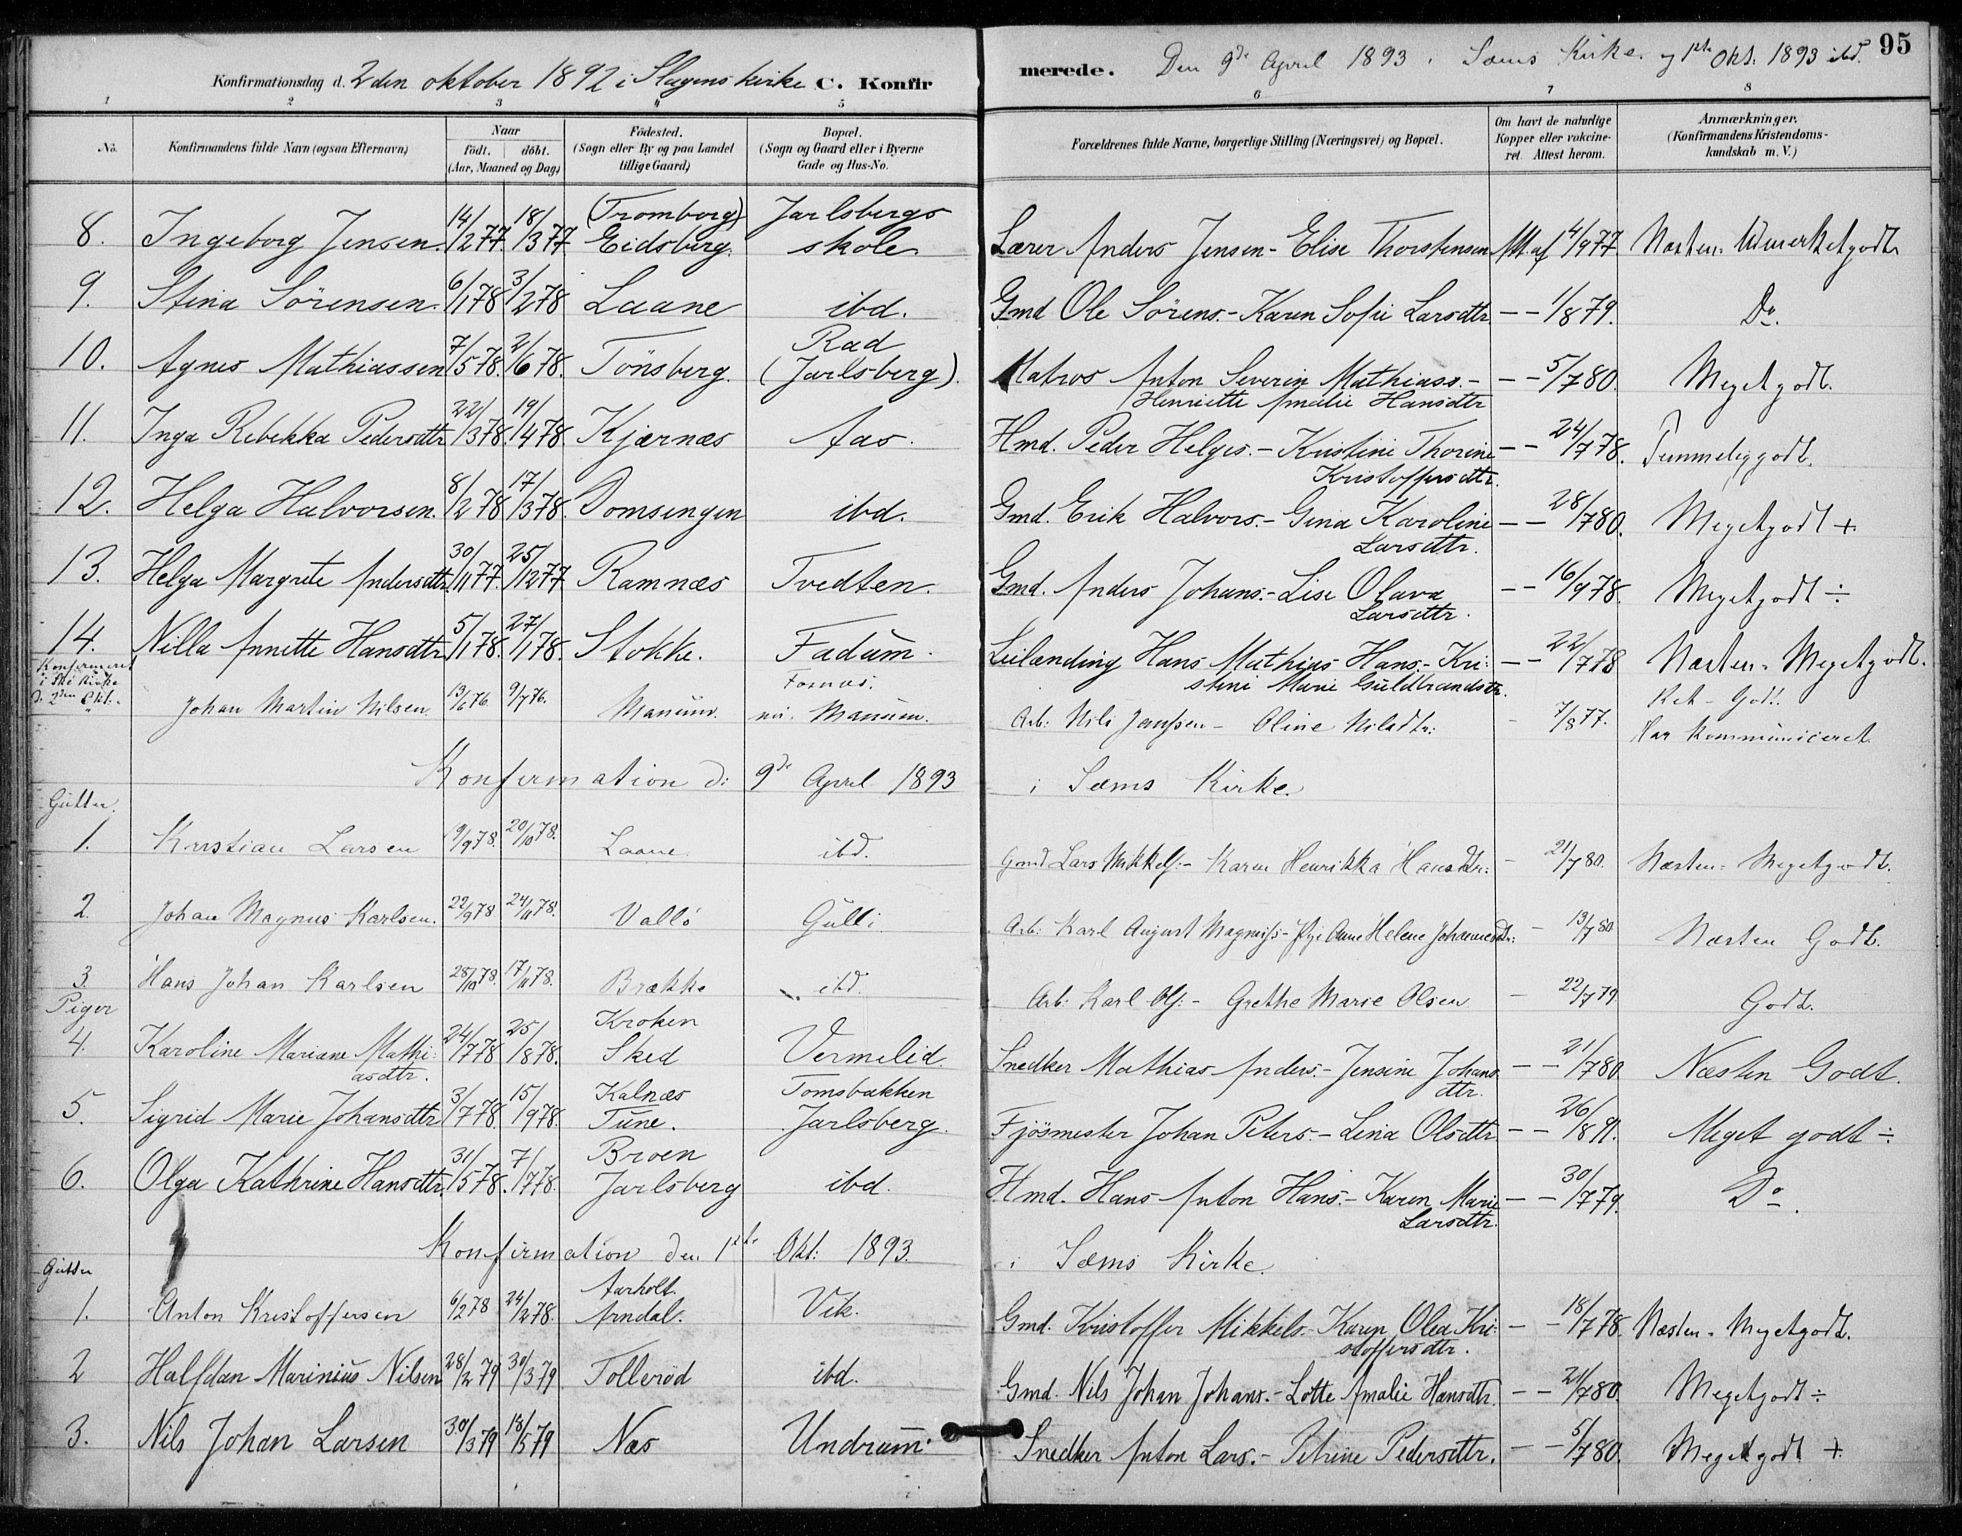 95
Konfirmationsdag d. 2den oktober 1892 i Slagens kirke C. Konfirmerede. Den 9de April 1893 i Sæms Kirke. og 1ste Okt. 1893 ibd.
1 2 3 4 5 6 7 8
No. Konfirmandens fulde Navn (ogsaa Efternavn) Naar födt. döbt. (Aar, Maaned og Dag.) Födested. (Sogn eller By og paa Landet tillige Gaard) Bopæl. (Sogn og Gaard eller i Byerne Gade og Hus-No. Forældrenes fulde Navne, borgerlige Stilling (Næringsvei) og Bopæl. Om havt de naturlige Kopper eller vakcineret. Attest herom. Anmærkninger. (Konfirmandens Kristendomskundskab m. V.)
8. Ingeborg Jensen. 14/2 77. 18/3 77 (Tromborg) Eidsberg. Jarlsbergs skole Lærer Anders Jensen - Elise Thorstensen Att. af 14/9 77. Næsten Udmerketgodt
9. Stina Sörensen. 6/1 78 3/2 78 Laane ibd. Gmd Ole Sörens. - Karen Sofie Larsdtr. - - 1/8 79. Do.
10. Agnes Mathiassen 7/5 78. 2/6 78. Tönsberg. Rad (Jarlsberg). Matros Anton Severin Mathiass. - Henriette Amalie Hansdtr - - 5/7 80. Meget godt.
11. Inga Rebekka Pedersdtr. 22/3 78. 19/4 78. Kjærnæs Aas. Hmd. Peder Helges. - Kristine Thorine Kristoffersdtr. - - 24/7 78. Temmelig godt.
12. Helga Halvorsen. 8/2 78 17/3 78. Domsengen ibd. Gmd. Erik Halvors. - Gina Karoline Larsdtr. - - 28/7 80. Megetgodt +
13. Helga Margrete Andersdtr. 30/11 77. 25/12 77 Ramnæs Tvedten. Gmd. Anders Johans. - Lise Olava Larsdtr. - - 16/9 78. Megetgodt ÷
14. Nilla Annette Hansdtr. 5/1 78. 27/1 78. Stokke. Fadum. Leilænding Hans Mathias Hans. - Kristine Marie Guldbrandsdtr. - - 22/7 78 Næsten - Megetgodt.
Konfirmeret i Kirke d. 2den Okt. Johan Martin Nilsen. 13/6 76. 9/7 76. Manum. Manum. Arb: Nils - Oline Nilsdtr: - 7/8 77. - Godt. Har kommuniceret
Konfirmation d: 9de April 1893 i Sæms Kirke.
Gutter.
1. Kristian Larsen 19/9 78. 20/10 78. Laane ibd. Gmd Lars Mikkels: - Karen Henrikka Hansdtr: - 21/7 80. Næsten - Megetgodt.
2. Johan Magnus Karlsen. 22/9 78 24/11 78. Vallö Gulli Arb: Karl August Magniss - Anne Helene Johannesdtr: - 13/7 80 Næsten Godt.
3. Hans Johan Karlsen 28/10 78. 17/11 78. Brække ibd. Arb: Karl Ols: - Grethe Marie Olsen - 22/7 79 Godt.
Piger
4. Karoline Mariane Mathiasdtr. 24/7 78 25/8 78. Kroken Sked Vermelid. Snedker Mathias Anders. - Jensine Johansdtr. - - 21/7 80 Næsten Godt.
5. Sigrid Marie Johansdtr. 3/7 78. 15/9 78. Kalnæs Tune. Tomsbakken Jarlsberg. Fjösmester Johan Peters. - Lina Olsdtr - - 26/8 91. Meget godt ÷
6. Olga Kathrine Hansdtr. 31/5 78. 7/7 78. Broen Jarlsberg ibd. Hmd. Hans Anton Hans. - Karen Marie Larsdtr. - - 30/7 79. Do.
Konfirmation den 1ste Okt: 1893. i Sæms Kirke.
Gutter
1. Anton Kristoffersen 6/2 78 24/2 78. Aarholt. Arndal. Vik. Gmd. Kristoffer Mikkels. - Karen Olea Kristoffersdtr. - - 18/7 78. Næsten - Megetgodt.
2 Halfdan Marinius Nilsen 28/2 79 30/3 79 Tolleröd ibd. Gmd. Nils Johan Johans. - Lotte Amalie Hansdtr. - - 21/7 80. Megetgodt ÷
3. Nils Johan Larsen 30/3 79 18/5 79 Næs Undrum. Snedker Anton Lars. - Petrine Pedersdtr. - - 5/7 80. Megetgodt +